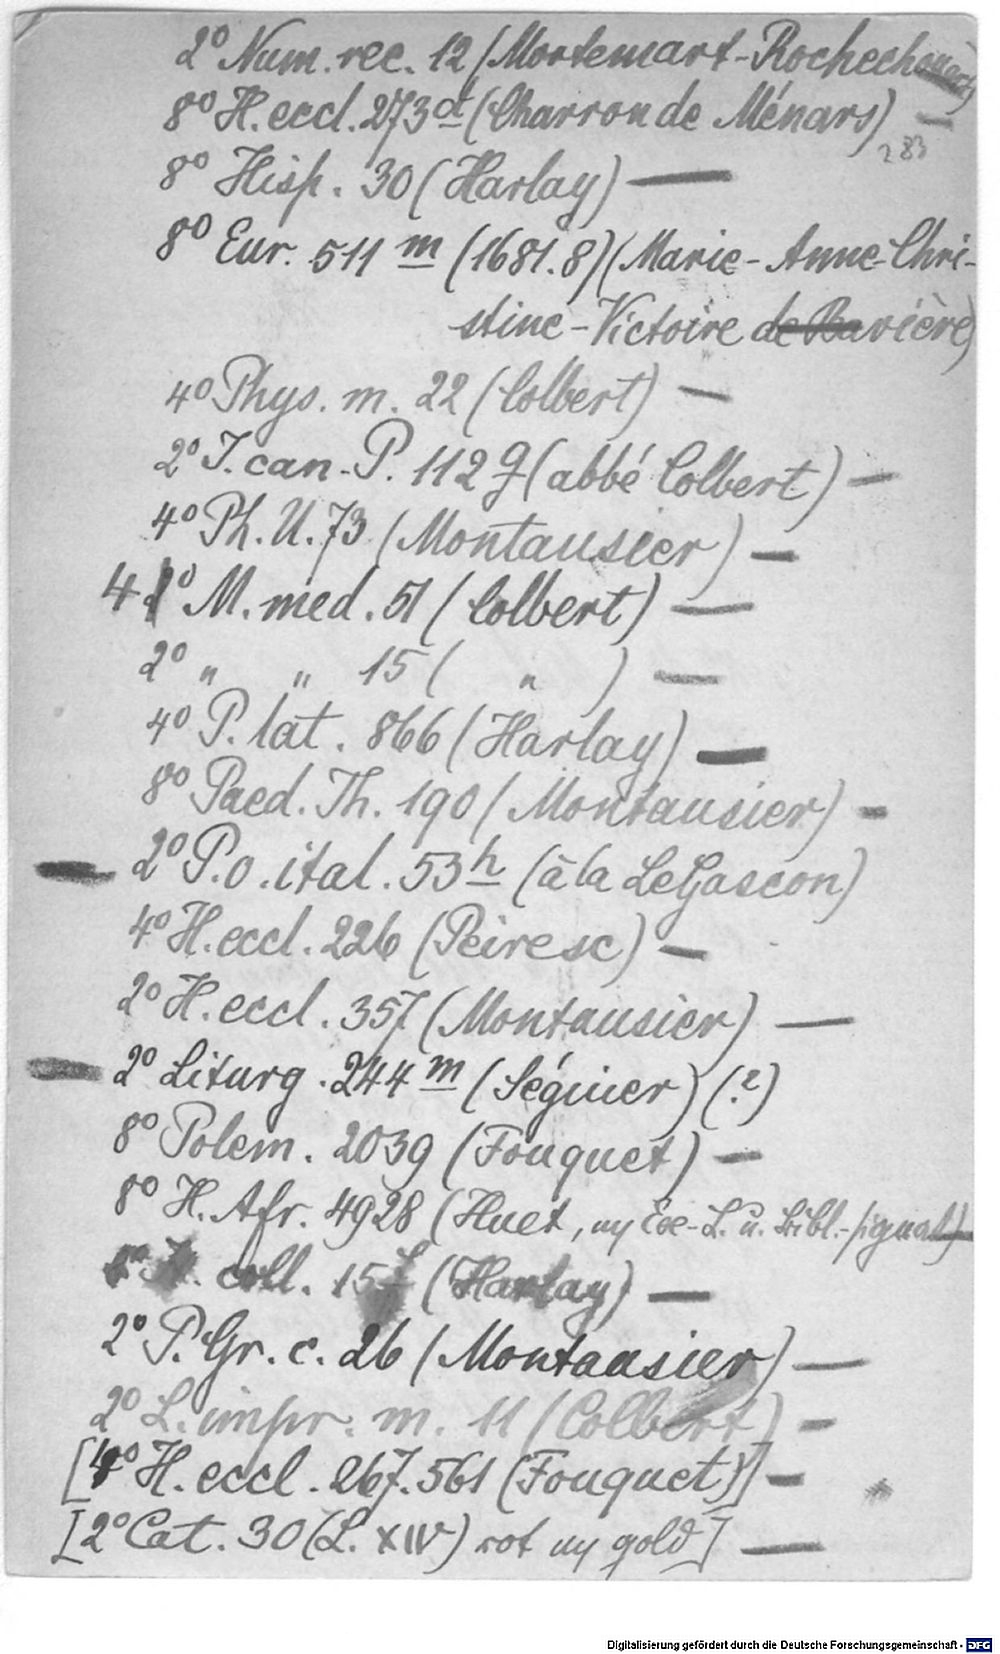 2° Num. rec. 12 (Mortemart-Rochechouart)
8° H. eccl. 273 d (Charron de Ménars) —
283
8° Hisp. 30 (Harlay) —
8° Eur. 511 m (1681.8) (Marie-Anne-Chri-
stine-Victoire de Bavière)
4° Phys. m. 22 (Colbert) —
2° J. can. P. 112 g (abbé Colbert) —
4° Ph. U. 73 (Montausier) —
4° M. med. 51 (Colbert) —
2° " " 15 ( " ) —
4° P. lat. 866 (Harlay) —
8° Paed. Th. 190 (Montausier) —
— 2° P. o. ital. 53 h (à la LeGascon)
4° H. eccl. 226 (Peiresc) —
2° H. eccl. 357 (Montausier) —
— 2° Liturg. 244 m (Séguier) (?)
8° Polem. 2039 (Fouquet) —
8° H. Afr. 4928 (Huet, m Exe-L. u. Bibl.-signat)
coll. 15 (Harlay) —
2° P. Gr. c. 26 (Montausier) —
2° L. impr. m. 11 (Colbert) —
[4° H. eccl. 267.561 (Fouquet)] —
[2° Cat. 30 (L. XIV) rot m gold] —
Digitalisierung gefördert durch die Deutsche Forschungsgemeinschaft - DFG